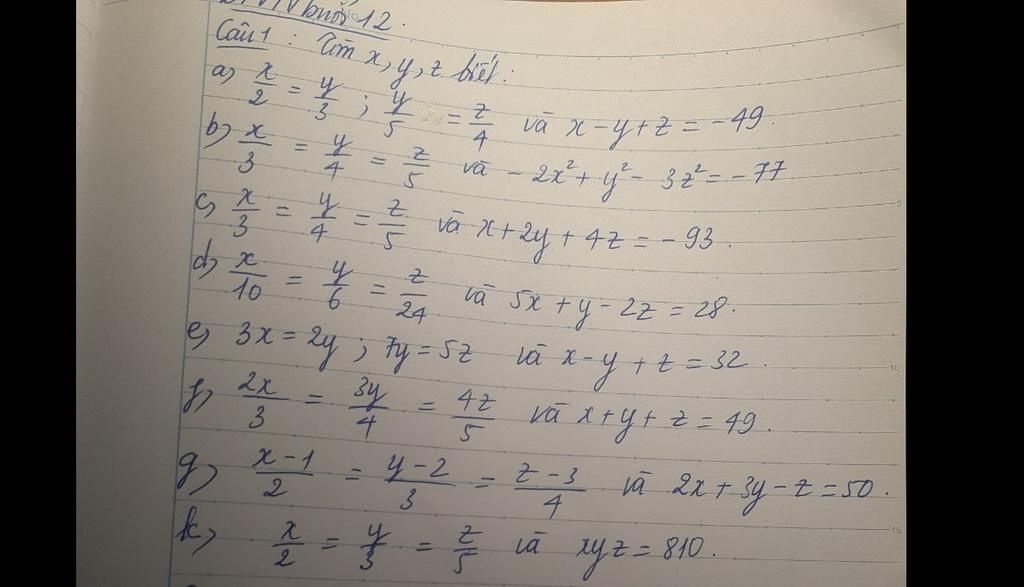 buổi 12.
Câu 1 : Tìm x, y, z biết :
a) x/2 = y/3 ; y/5 = z/4 và x - y + z = -49
b) x/3 = y/4 = z/5 và - 2x² + y² - 3z² = -77
c) x/3 = y/4 = z/5 và x + 2y + 4z = -93.
d) x/10 = y/6 = z/24 và 5x + y - 2z = 28.
e) 3x = 2y ; 7y = 5z và x - y + z = 32.
f) 2x/3 = 3y/4 = 4z/5 và x + y + z = 49.
g) x-1/2 = y-2/3 = z-3/4 và 2x + 3y - z = 50.
k) x/2 = y/3 = z/5 và xyz = 810.